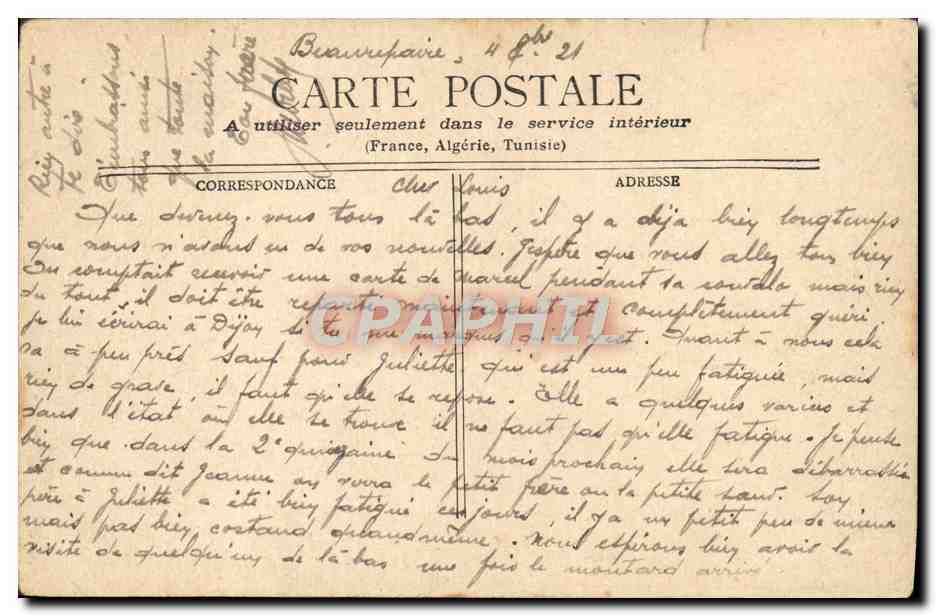 Beaurepaire, 4 8bre 21
CARTE POSTALE
A utiliser seulement dans le service intérieur
(France, Algérie, Tunisie)
CORRESPONDANCE
ADRESSE
Cher Louis
Que devenez-vous tous là bas, il y a déja bien longtemps
que nous n'avons eu de vos nouvelles. J'espère que vous allez tous bien
On comptait recevoir une carte de Marcel pendant sa convalo mais rien
du tout, il doit être reparti maintenant et complètement guéri
je lui écrirai à Dijon si tu me marques qu'il y est. Quant à nous cela
va à peu près sauf pour Juliette qui est un peu fatiguée, mais
rien de grave, il faut qu'elle se repose. Elle a quelques varices et
dans l'état où elle se trouve il ne faut pas qu'elle fatigue. Je pense
bien que dans la 2e quinzaine du mois prochain elle sera débarrassée
et comme dit Jeanne on verra le petit frère ou la petite sœur. Son
père à Juliette a été bien fatigué ces jours, il y a un petit peu de mieux
mais pas bien costaud quand même. Nous espérons bien avoir la
visite de quelqu'un de là bas une fois le moutard arrivé
Rien autre à
te dire
T'embrassons
tous ainsi
que toute
la maison.
Ton frère
CPAPHIL